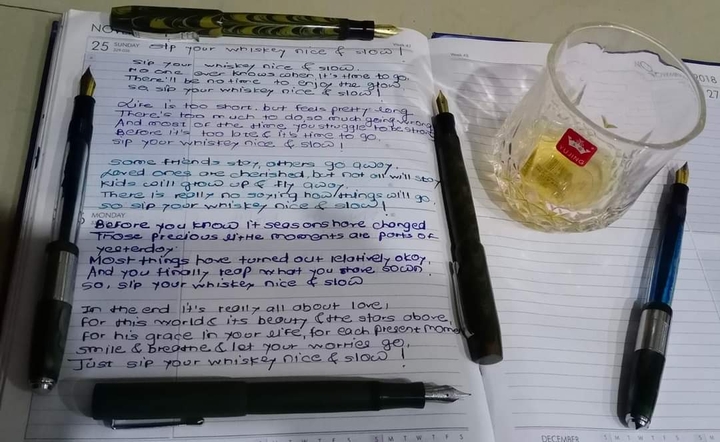 25 SUNDAY
sip your whiskey nice & slow!
Sip your whiskey nice & slow.
No one ever knows when it's time to go,
There'll be no time to enjoy the glow
so, sip your whiskey nice & slow!
Life is too short, but feels pretty long
There's too much to do, so much going wrong
And most of the time, you struggle to be strong
Before it's too late & it's time to go
sip your whiskey nice & slow!
Some friends stay, others go away.
Loved ones are cherished, but not all will stay
kids will grow up & fly away.
There is really no saying how things will go
so sip your whiskey nice & slow!
MONDAY
Before you know it seasons have changed
Those precious little moments are parts of
yesterday.
Most things have turned out relatively okay,
And you finally reap what you sown.
So, sip your whiskey nice & slow
In the end it's really all about love,
for this world & its beauty & the stars above,
for his grace in your life, for each present moment
smile & breathe & let your worries go,
Just sip your whiskey nice & slow!
2018
27
YUJING
DECEMBER
S M T W T F S